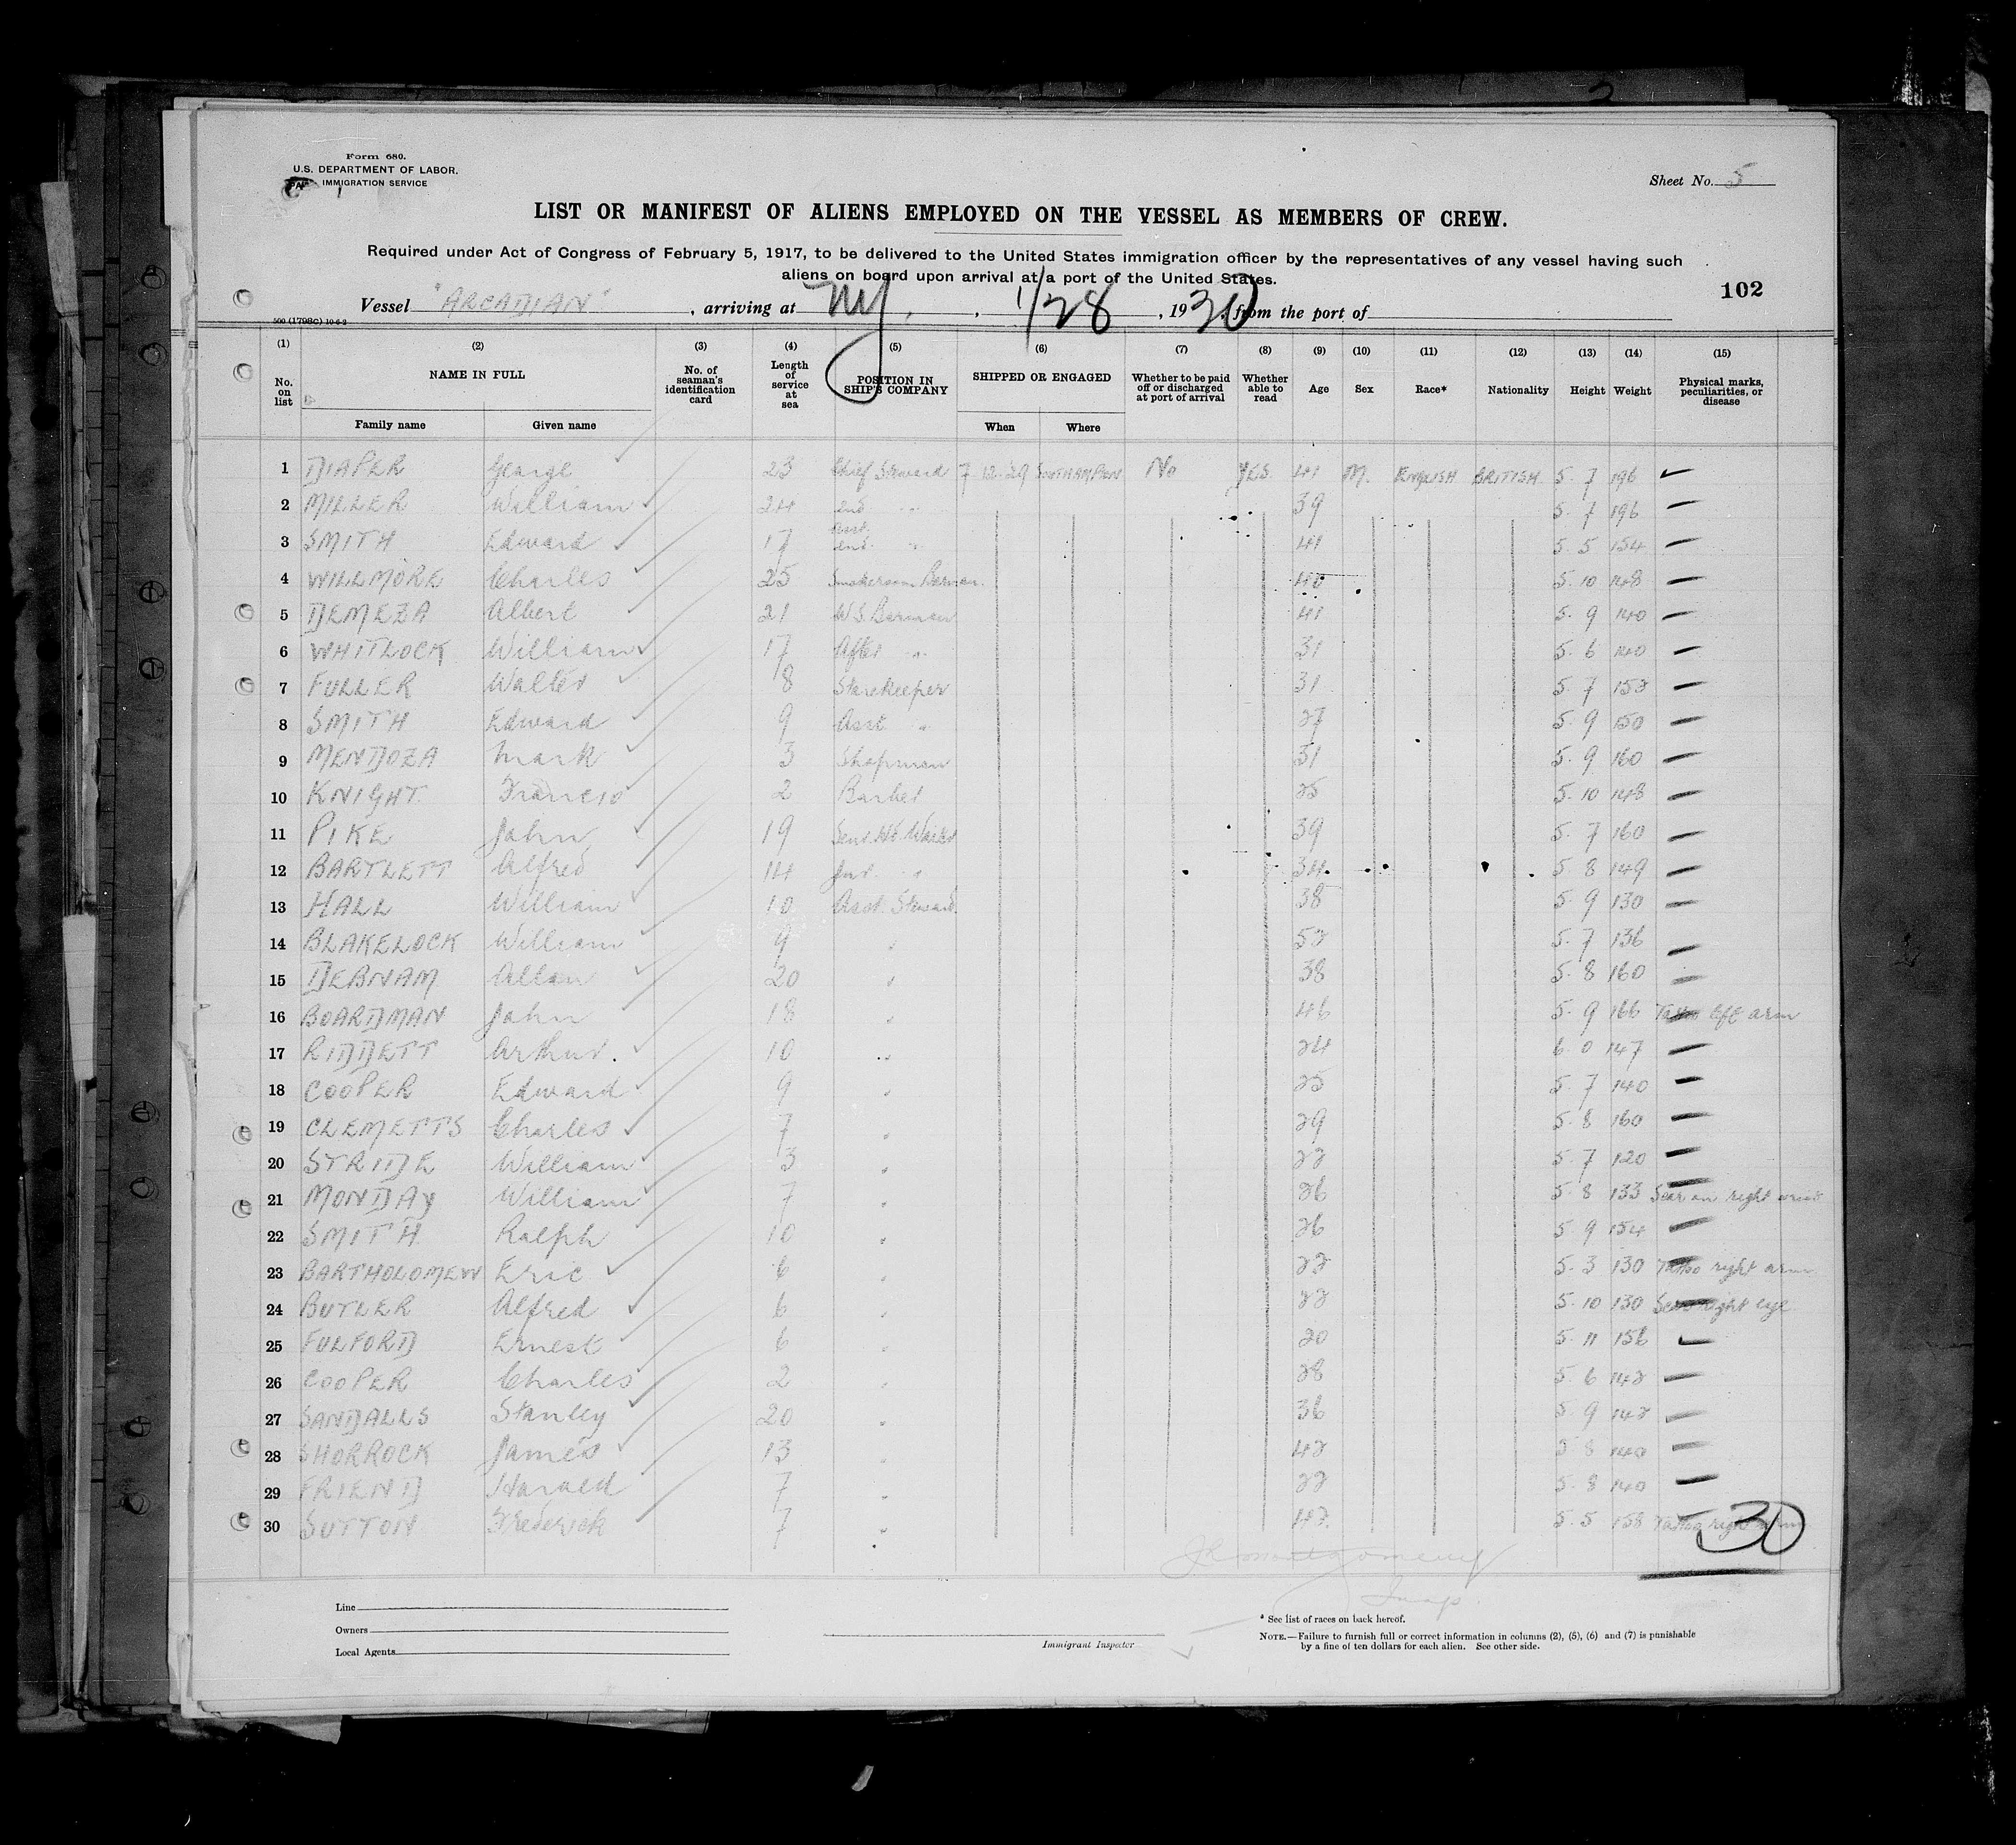 Form 680.
U.S. DEPARTMENT OF LABOR.
IMMIGRATION SERVICE
Sheet No. 5
LIST OR MANIFEST OF ALIENS EMPLOYED ON THE VESSEL AS MEMBERS OF CREW.
Required under Act of Congress of February 5, 1917, to be delivered to the United States immigration officer by the representatives of any vessel having such
aliens on board upon arrival at a port of the United States.
102
Vessel "ARCADIAN", arriving at NY, 1/28, 1930, from the port of
500 (1798C) 10-6-2
(1) (2) (3) (4) (5) (6) (7) (8) (9) (10) (11) (12) (13) (14) (15)
No. on list NAME IN FULL No. of seaman's identification card Length of service at sea POSITION IN SHIP'S COMPANY SHIPPED OR ENGAGED Whether to be paid off or discharged at port of arrival Whether able to read Age Sex Race* Nationality Height Weight Physical marks, peculiarities, or disease
Family name Given name When Where
1 DIAPER George 23 Chief Steward 7-12-29 SOUTHAMPTON No YES 41 M. ENGLISH BRITISH 5. 7 196
2 MILLER William 24 2nd " 39 5. 7 196
3 SMITH Edward 17 Asst. 2nd. " 41 5. 5 154
4 WILLMORE Charles 25 Smokeroom Barman 40 5. 10 148
5 DEMEZA Albert 21 W.S. Barman 41 5. 9 140
6 WHITLOCK William 17 After " 31 5. 6 140
7 FULLER Walter 8 Storekeeper 31 5. 7 152
8 SMITH Edward 9 Asst. " 27 5. 9 150
9 MENDOZA Mark 3 Shopman 31 5. 9 160
10 KNIGHT Francis 2 Barber 25 5. 10 148
11 PIKE John 19 39 5. 7 160
12 BARTLETT Alfred 14 " 34 5 8 149
13 HALL William 10 Asst. Steward 38 5. 9 130
14 BLAKELOCK William 9 " 52 5. 7 136
15 DEBNAM Allan 20 " 38 5. 8 160
16 BOARDMAN John 18 " 46 5. 9 166 Tattoo left arm
17 RIDDETT Arthur. 10 " 24 6. 0 147
18 COOPER Edward 9 " 25 5. 7 140
19 CLEMETTS Charles 7 " 29 5. 8 160
20 STRIDE William 3 " 22 5. 7 120
21 MONDAY William 7 " 26 5. 8 133 Scar on right wrist
22 SMITH Ralph 10 " 26 5. 9 154
23 BARTHOLOMEW Eric 6 " 22 5. 3 130 Tattoo right arm
24 BUTLER Alfred 6 " 22 5. 10 130 Scar right eye
25 FULFORD Ernest 6 " 20 5. 11 156
26 COOPER Charles 2 " 28 5. 6 142
27 SANDALLS Stanley 20 " 36 5. 9 142
28 SHORROCK James 13 " 42 5 8 140
29 FRIEND Harold 7 " 22 5. 8 140
30 SUTTON Frederick 7 " 42. 5. 5 158 Tattoo right arm
30
Line
Owners
Local Agents
Immigrant Inspector
JR Montgomery
Insp.
* See list of races on back hereof.
NOTE.—Failure to furnish full or correct information in columns (2), (5), (6) and (7) is punishable
by a fine of ten dollars for each alien. See other side.